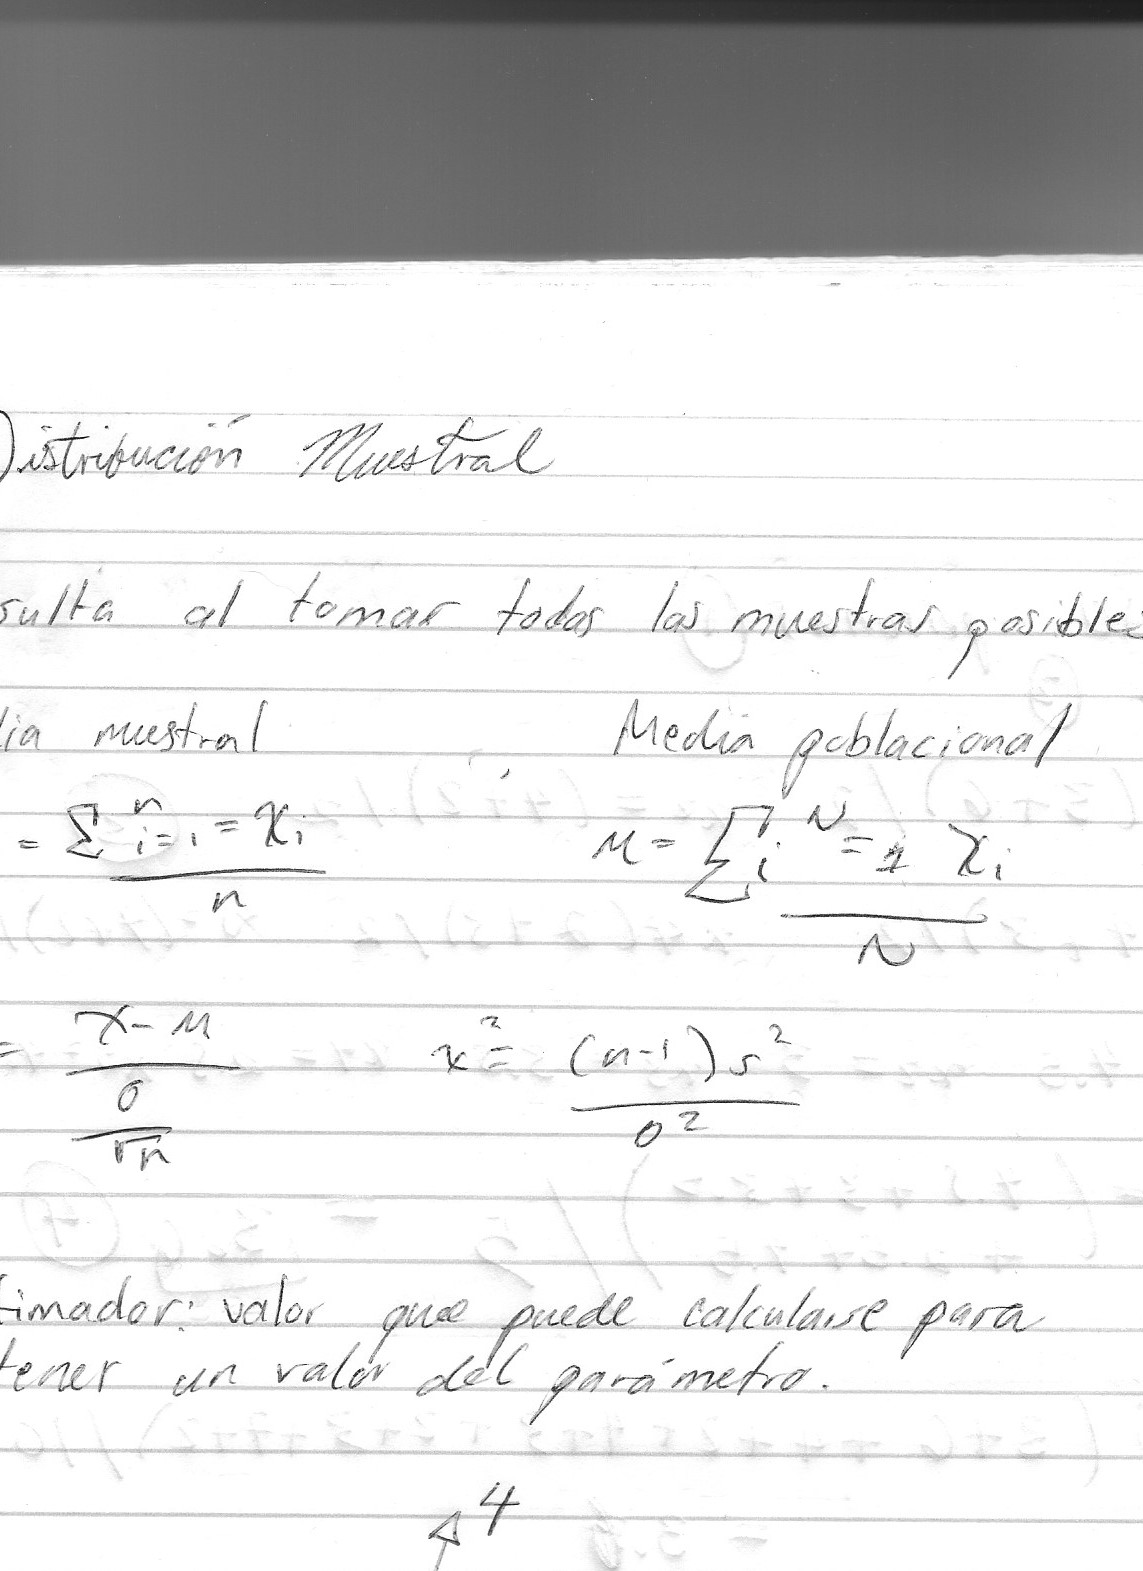 Distribución Muestral
sulta al tomar todas las muestras posibles
dia muestral Media poblacional
= Σ n i=1 = Xi / n μ = Σ i N = 1 Xi / N
= x - μ / σ / √n x² = (n-1) s² / σ²
timador: valor que puede calcularse para
tener un valor del parámetro.
4